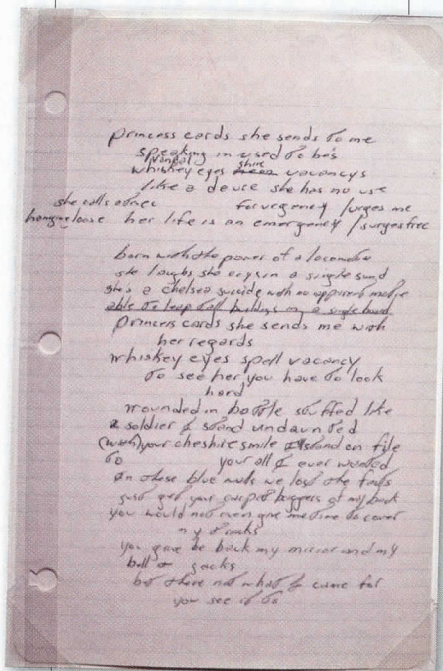 princess cards she sends to me
speaking in used to be's
whiskey eyes shine vacancys
like a deuce she has no use
she calls for urgency / urges me
hanging loose her life is an emergency / surges free
born with the power of a locomotive
she laughs she crys in a single sound
she's a chelsea suicide with no apparent motive
able to leap tall buildings in a single bound
princess cards she sends me with
her regards
whiskey eyes spell vacancy
to see her you have to look
hard
wounded in battle stuffed like
a soldier I stand undaunted
(with) your cheshire smile stand on file
to your all I ever wanted
in these blue we lost the
just get your carpet baggers of my back
you would not even give me time to cover
my tracks
you gave be back my mirror and my
ball & jacks
but there not what I came for
you see it to